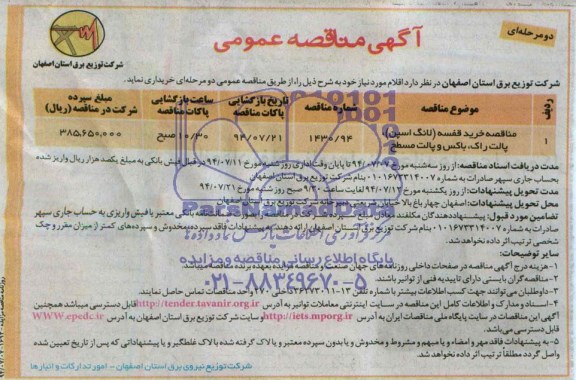 دو مرحله‌ای
آگهی مناقصه عمومی
شرکت توزیع برق استان اصفهان
شرکت توزیع برق استان اصفهان در نظر دارد اقلام مورد نیاز خود به شرح ذیل را، از طریق مناقصه عمومی دو مرحله‌ای خریداری نماید.
ردیف
موضوع مناقصه
شماره مناقصه
تاریخ بازگشایی پاکات مناقصه
ساعت بازگشایی پاکات مناقصه
مبلغ سپرده شرکت در مناقصه (ریال)
۱
مناقصه خرید قفسه (لانگ اسپن)، پالت راک، باکس و پالت مسطح
۱۴۳۰/۹۴
۹۴/۰۷/۲۱
۱۰/۳۰ صبح
۳۸۵,۶۵۰,۰۰۰
مدت دریافت اسناد مناقصه: از روز سه‌شنبه مورخ ۹۴/۰۷/۰۷ تا پایان وقت اداری روز شنبه مورخ ۹۴/۰۷/۱۱ در قبال فیش بانکی به مبلغ یکصد هزار ریال واریز شده
بحساب جاری سپهر صادرات به شماره ۰۱۰۱۶۷۳۳۱۴۰۰۷ بنام شرکت توزیع برق استان اصفهان
مدت تحویل پیشنهادات: از روز یکشنبه مورخ ۹۴/۰۷/ لغایت ساعت ۹/۳۰ صبح روز سه‌شنبه مورخ ۹۴/۰۷/۲۱
محل تحویل پیشنهادات: اصفهان چهارباغ بالا خیابان شریعتی دبیرخانه شرکت توزیع برق استان اصفهان
تضامین مورد قبول: پیشنهاددهندگان مکلفند معادل مبلغ سپرده بانکی معتبر یا فیش واریزی به حساب جاری سپهر
صادرات به شماره ۰۱۰۱۶۷۳۳۱۴۰۰۷ بنام شرکت توزیع برق استان اصفهان ارائه دهند. به پیشنهادات فاقد سپرده، مخدوش و سپرده‌های کمتر از میزان مقرر و چک
شخصی ترتیب اثر داده نخواهد شد.
سایر توضیحات:
۱- هزینه درج آگهی مناقصه در صفحات داخلی روزنامه‌های جهان صنعت و مناقصه مزایده بعهده برنده مناقصه میباشد.
۲- مناقصه‌گران بایستی دارای تاییدیه فنی از توانیر باشند.
۳- داوطلبان می توانند جهت کسب اطلاعات بیشتر با شماره تلفن ۱۳-۳۶۲۷۳۰۱۱ داخلی ۹۷۰ واحد مناقصات تماس حاصل نمایند.
۴- اسناد و مدارک و اطلاعات کامل این مناقصه در سایت اینترنتی معاملات توانیر به آدرس http://tender.tavanir.org.ir قابل دسترسی میباشد همچنین
آگهی این مناقصه در سایت پایگاه ملی مناقصات ایران به آدرس http://iets.mporg.ir و سایت شرکت توزیع برق استان اصفهان به آدرس WWW.EPEDC.IR
قابل دسترسی می باشد.
۵- به پیشنهادات فاقد مهر و امضاء و یا مبهم و مشروط و مخدوش و یا بدون سپرده معتبر و یا لاک گرفته شده بدون لاک غلط‌گیر و یا پیشنهاداتی که پس از تاریخ تعیین شده
واصل گردد مطلقا ترتیب اثر داده نخواهد شد.
شرکت توزیع نیروی برق استان اصفهان - امور تدارکات و انبارها
پایگاه اطلاع رسانی مناقصه و مزایده
۰۲۱-۸۸۳۴۹۶۷۰-۵